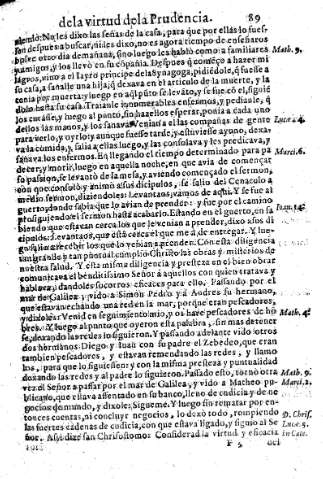 de la virtud de la Prudencia. 89
siendo: Ni les dixo las señas de la casa, para que por ellas lo fues-
sen despues a buscar, ni les dixo, no es agora tiempo de enseñaros
otro dia de mañana, sino luego les habló como a familiares Math. 9.
y amigos, y los llevo en su cōpañia. Despues q̃ começo a hazer mi
lagros, vino a el Iayro principe de la Synagoga, pidiédole, q̃ fuesse a
su casa, a sanalle una hija, q̃ dexava en el articulo de la muerte, y la
tenia por muerta: y luego en aq̃l puto se levāto, y se fue cō el, siguié
dole hasta su casa. Traianle innumerables enfermos, y pedianle, q̃
los curasse, y luego al punto, sin hazellos esperar, ponia a cada uno
dellos las manos, y los sanava. Venian a el las compañias de gente Lucæ 4.
para verlo, y oyrlo, y aunque fuesse tarde, y estuviesse ayuno, dexa-
va la comida, y salia a ellas luego, y las consolava, y les predicava, y
sanava los enfermos. En llegando el tiempo determinado para pa Marci. 6.
decer, y morir, luego en aquella noche, en que avia de començar
su passion, se levantó de la mesa, y aviendo començado el sermon,
con que consoló y animó a sus dicipulos, se salio del Cenaculo a
medio sermon, diziendoles: Levantaos, vamos de aqui. Y fue al
guerto, donde sabia que lo avian de prender: y fue por el camino
prosiguiendo el sermon hasta acabarlo. Estando en el guerto, en sa Ioan. 14.
biendo que estavan cerca los que le venian a prender, dixo a sus di
cipulos: Levantaos, que està cerca el que me à de entregar. Y lue-
go salio a recebir los que lo venian a prender. Con esta diligencia
tan grande y tan puntual cumplio Christo las obras y misterios de
nuestra salud. Y esta misma diligencia y presteza en el bien obrar
comunicava el benditissimo Señor a aquellos con quien tratava y
hablava, dandoles socorros eficaces para ello. Passando por el
mar de Galilea, vido a Simon Pedro, y a Andres su hermano,
que estavan echando una red en la mar, porque eran pescadores,
y dixoles: Venid en seguimiento mio, y os haré pescadores de hō Math. 4.
bres. Y luego al punto que oyeron esta palabra, sin mas detener
se, dexando las redes lo siguieron. Y passando adelante vido otros
dos hermanos: Diego y Iuan con su padre el Zebedeo, que eran
tambien pescadores, y estavan remendando las redes, y llamo
los, para que lo siguiessen: y con la misma presteza y puntualidad
dexando las redes y al padre lo siguieron. Passado esto, tornò otra Math. 9.
vez el Señor a passar por el mar de Galilea, y vido a Matheo pu- Marci. 2.
blicano, que estava assentado en su banco, lleno de cudicia y de ne
gocios del mundo, y dixole: Sigueme. Y luego sin rematar por en-
tonces cuentas, ni concluyr negocios, lo dexò todo, rompiendo D. Chris.
las fuertes cadenas de cudicia, con que estava ligado, y siguio al Se Lucæ. 5.
ñor. Assi dize san Chrisostomo: Considerad la virtud y eficacia in Cate.
F 5